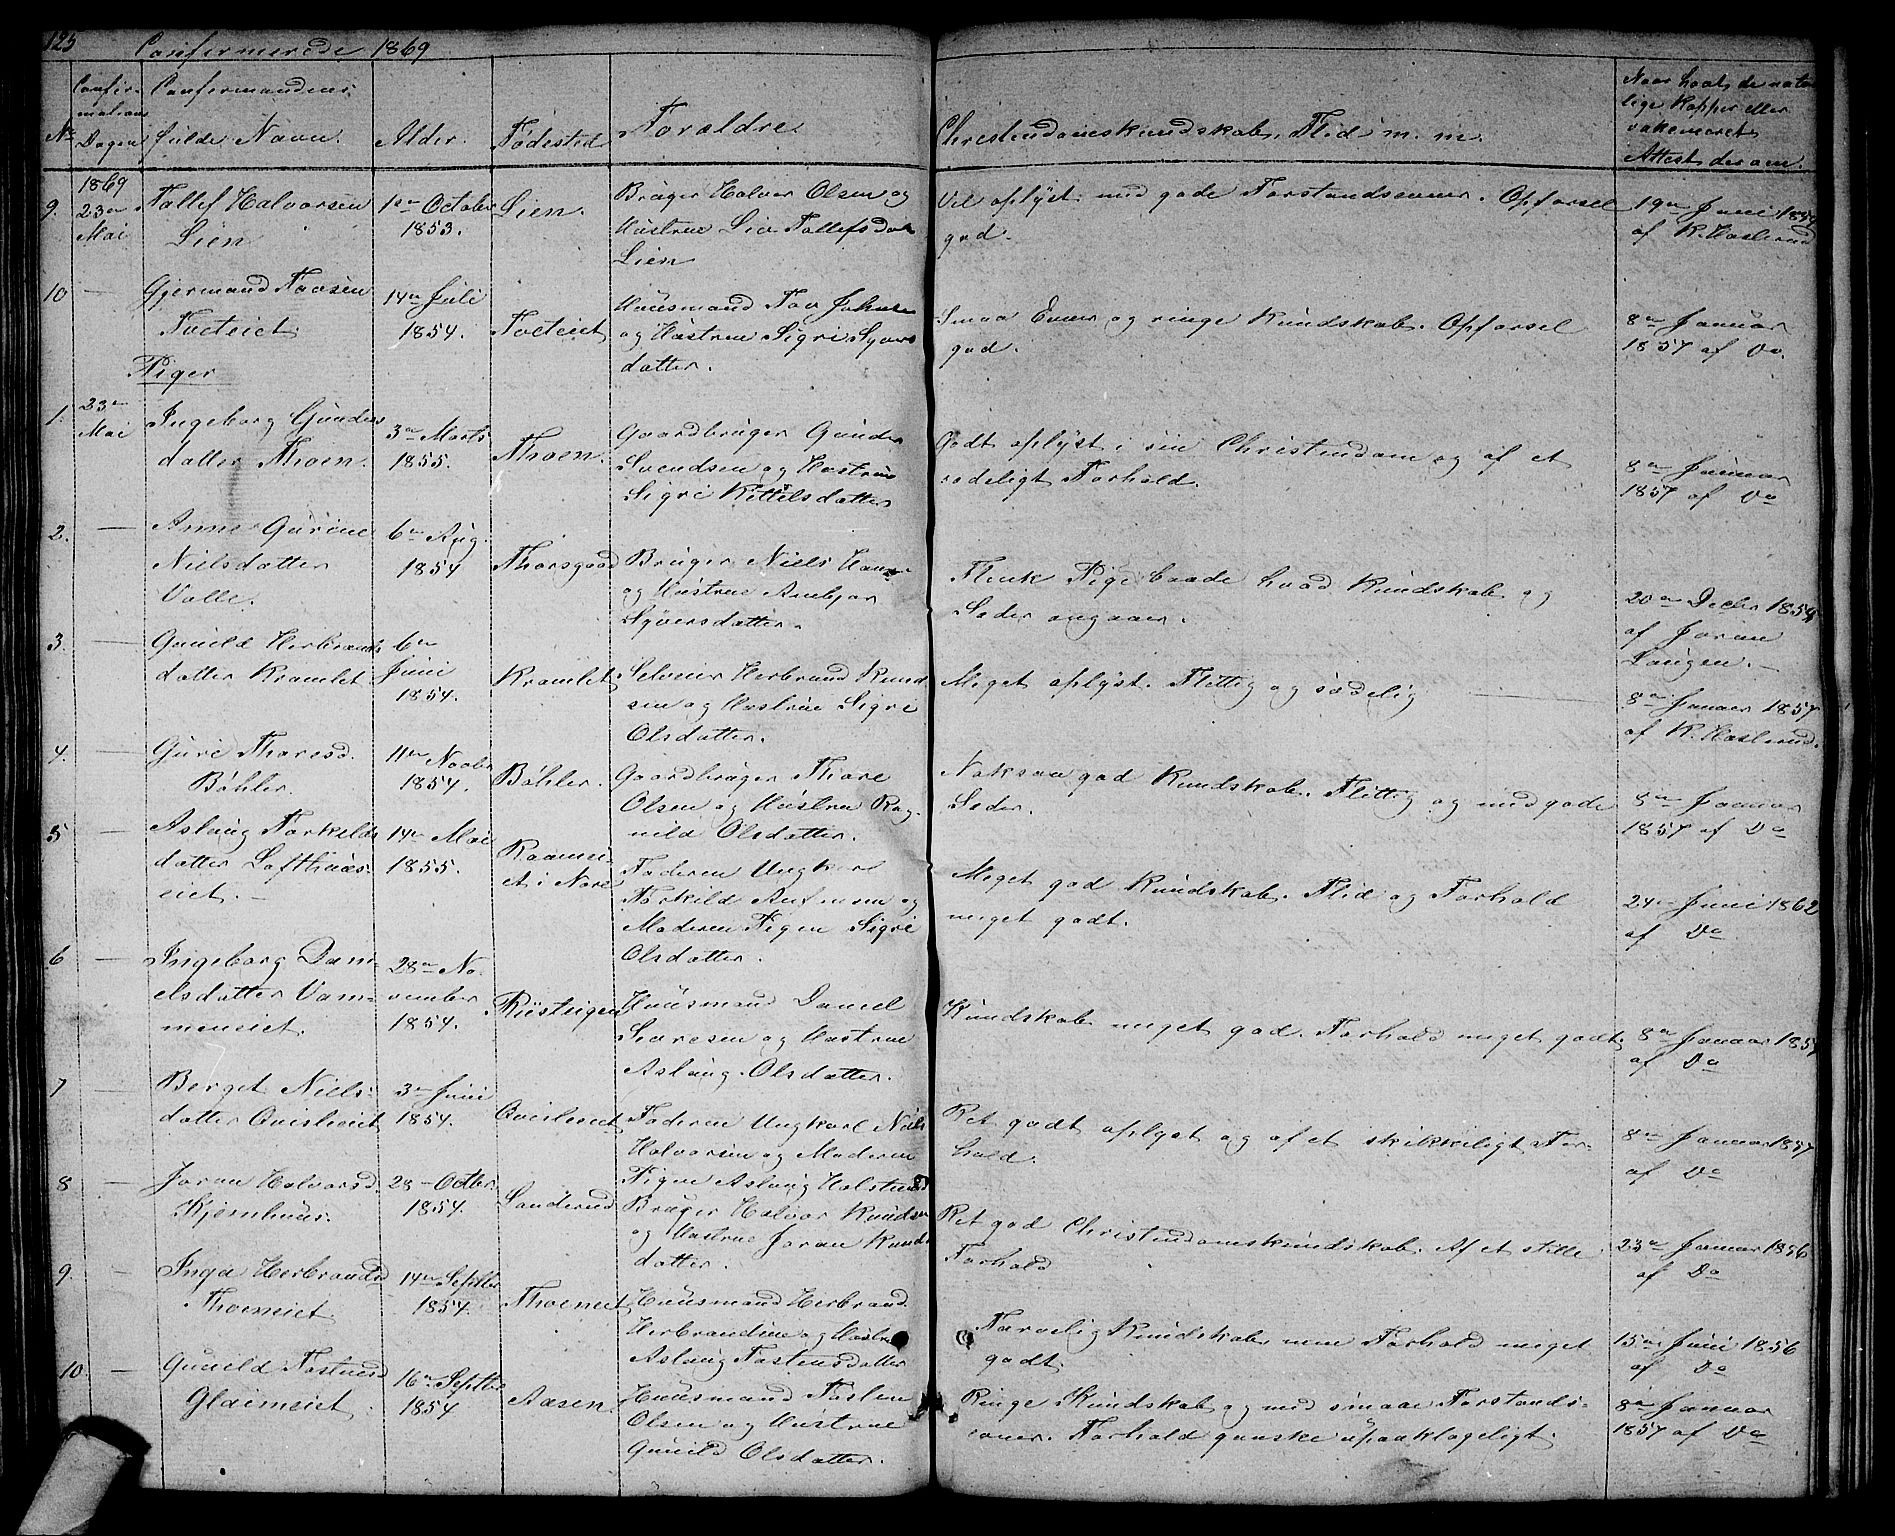 125 Confermerede 1869
Confir-
mations
No Dagen
Confermandens
fulde Navn.
Alder.
Fødested
Forældre
Christendomskundskab, Flid m. m.
Naar havt de natur
lige Kopper eller
vakcineret
Attest derom.
9. 1869
23de
Mai
Tollef Halvorsen
Lien
1ste October
1853.
Lien.
Brüger Halvor Olsen og
Hustrue Liv Tollefsdatter
Lien
Vel oplyst med gode Forstandsevner. Opførsel
god.
19de Juni
af K. Haslerud
10 —
Gjermund Toosen
Toeteiet
14de Juli
1854.
Toeteiet
Huusmand Too Johnsen
og Hustrue Sigri Syvers
datter.
Smaa Evner og ringe Kundskab. Opførsel
god.
8de Januar
1857 af Do.
Piger
1. 23de
Mai
Ingeborg Gunders
datter Thoen.
3de Marts
1855.
Thoen.
Gaardbruger Gunder
Svendsen og Hustrue
Sigri Kittelsdatter
Godt oplyst i sin Christendom og af et
sædeligt Forhold.
8de Januar
1857 af Do
2. —
Anne Gurine
Nielsdatter
Valle.
6te Aug.
1854
Thorsgaard
Brüger Niels Hansen
og Hustrue Anbjør
Syversdatter.
Flink Pige baade hvad Kundskab og
Seder angaaer.
20de Decbr 1854
af Joran
Langen. —
3. —
Gunild Herbrands
datter Kravlet
6te
Juni
1854.
Kravlet
Selveier Herbrand Knud
sen og Hustrue Sigri
Olsdatter.
Meget oplyst. Flittig og sædelig —
8de Januar 1857
af K. Haslerud.
4. —
Guri Thoresd.
Bøhler.
11te Novbr
1854.
Bøhler.
Gaardbrüger Thore
Olsen og Hustrue Rag
nild Olsdatter.
Noksaa god Kundskab. Flittig og med gode
Seder.
8de Januar
1857 af Do
5 —
Aslaug Torkilds
datter Lofthuus-
eiet. —
14de Mai
1855.
i Nore
Faderen Ungkarl
Torkild og
Moderen Pigen Sigri
Olsdatter.
Meget god Kundskab. Flid og Forhold
meget godt.
24de Juni 1862
af Do
6 —
Ingeborg Dani-
elsdatter Vam-
meneiet.
28de No-
vember
1854.
Huusmand Daniel
Sioresen og Hustrue
Aslaug Olsdatter.
Kundskab meget god. Forhold meget godt.
8de Januar 1857
af Do
7 —
Berget Niels-
datter Qvislieiet
3de Juni
1854.
Qvislieiet
Faderen Ungkarl Niels
Halvorsen og Moderen
Pigen Aslaug
Ret godt oplyst og af et skikkeligt For-
hold.
8de Januar 1857
af Do
8 —
Joran Halvorsd.
Kjemhuus.
23 Octbr.
1854.
Sønderud
Brüger Halvor Knudsen
og Hustrue Joran Knuds
datter.
Ret god Christendomskundskab. Af et stille
Forhold
23de Januar 1856
af Do
9. —
Inga Herbrandsd
Thoeneiet
14de Septbr
1854.
Thoeneiet
Huusmand Herbrand
Herbrandsen og Hustrue
Aslaug Tostensdatter
Tarvelig Kundskab men Forhold meget
godt.
15de Juni 1856
af Do
10. —
Gunild Tostensd
Glaimeiet.
16de Septbr
1854
Aasen.
Huusmand Tosten
Olsen og Hustrue
Gunild Olsdatter.
Ringe Kundskab og med smaae Forstands-
evner. Forhold ganske upaaklageligt.
8de Januar
1857 af Do